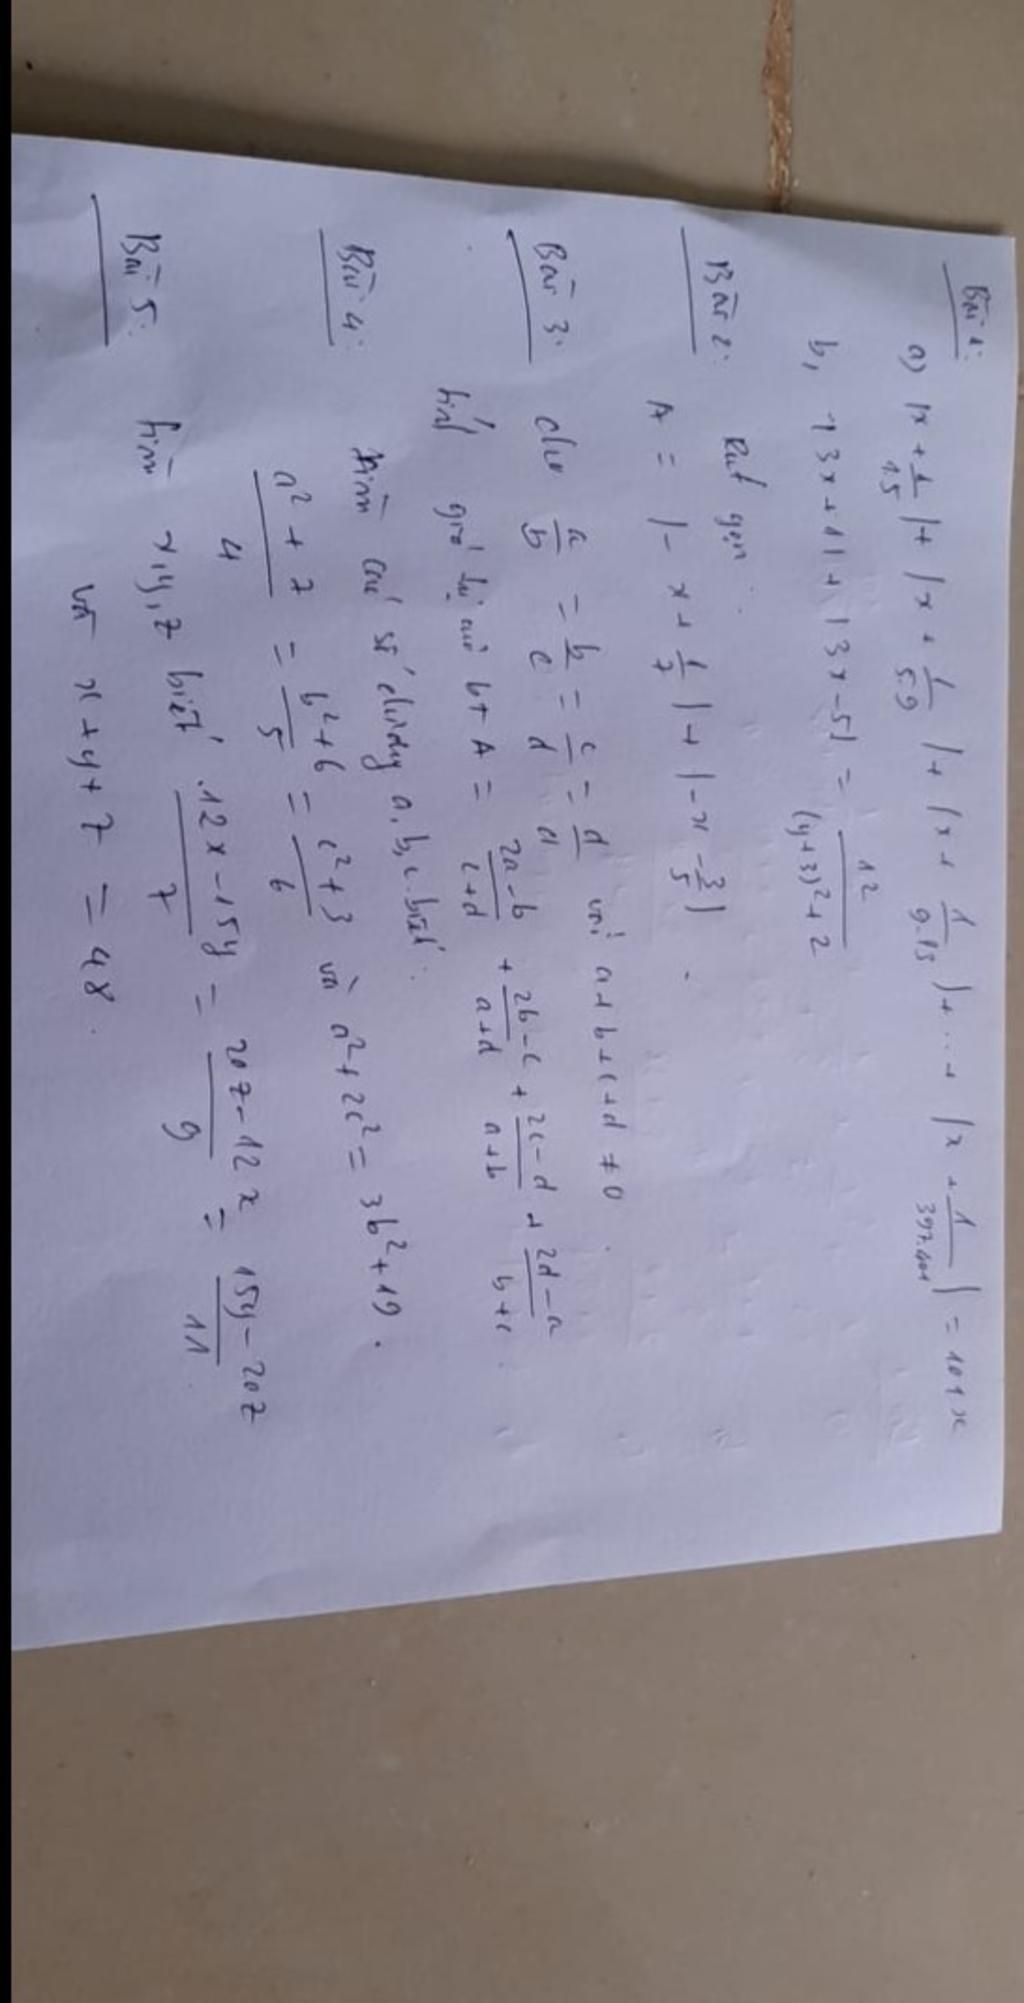 Bài 1:
a) |x + 1/1.5| + |x + 1/5.9| + |x + 1/9.13| + ... + |x + 1/397.401| = 101x
b, |3x+1| + |3x-5| = 12/((y+3)²+2)
Bài 2: Rút gọn:
A = |-x + 1/7| + |-x - 3/5|.
Bài 3: cho a/b = b/c = c/d = d/a với a+b+c+d ≠ 0
tính giá trị của bt A = (2a-b)/(c+d) + (2b-c)/(a+d) + (2c-d)/(a+b) + (2d-a)/(b+c).
Bài 4: tìm các số dương a, b, c biết:
(a²+7)/4 = (b²+6)/5 = (c²+3)/6 và a²+2c² = 3b²+19.
Bài 5: tìm x,y,z biết (12x-15y)/7 = (20z-12x)/9 = (15y-20z)/11
và x+y+z = 48.